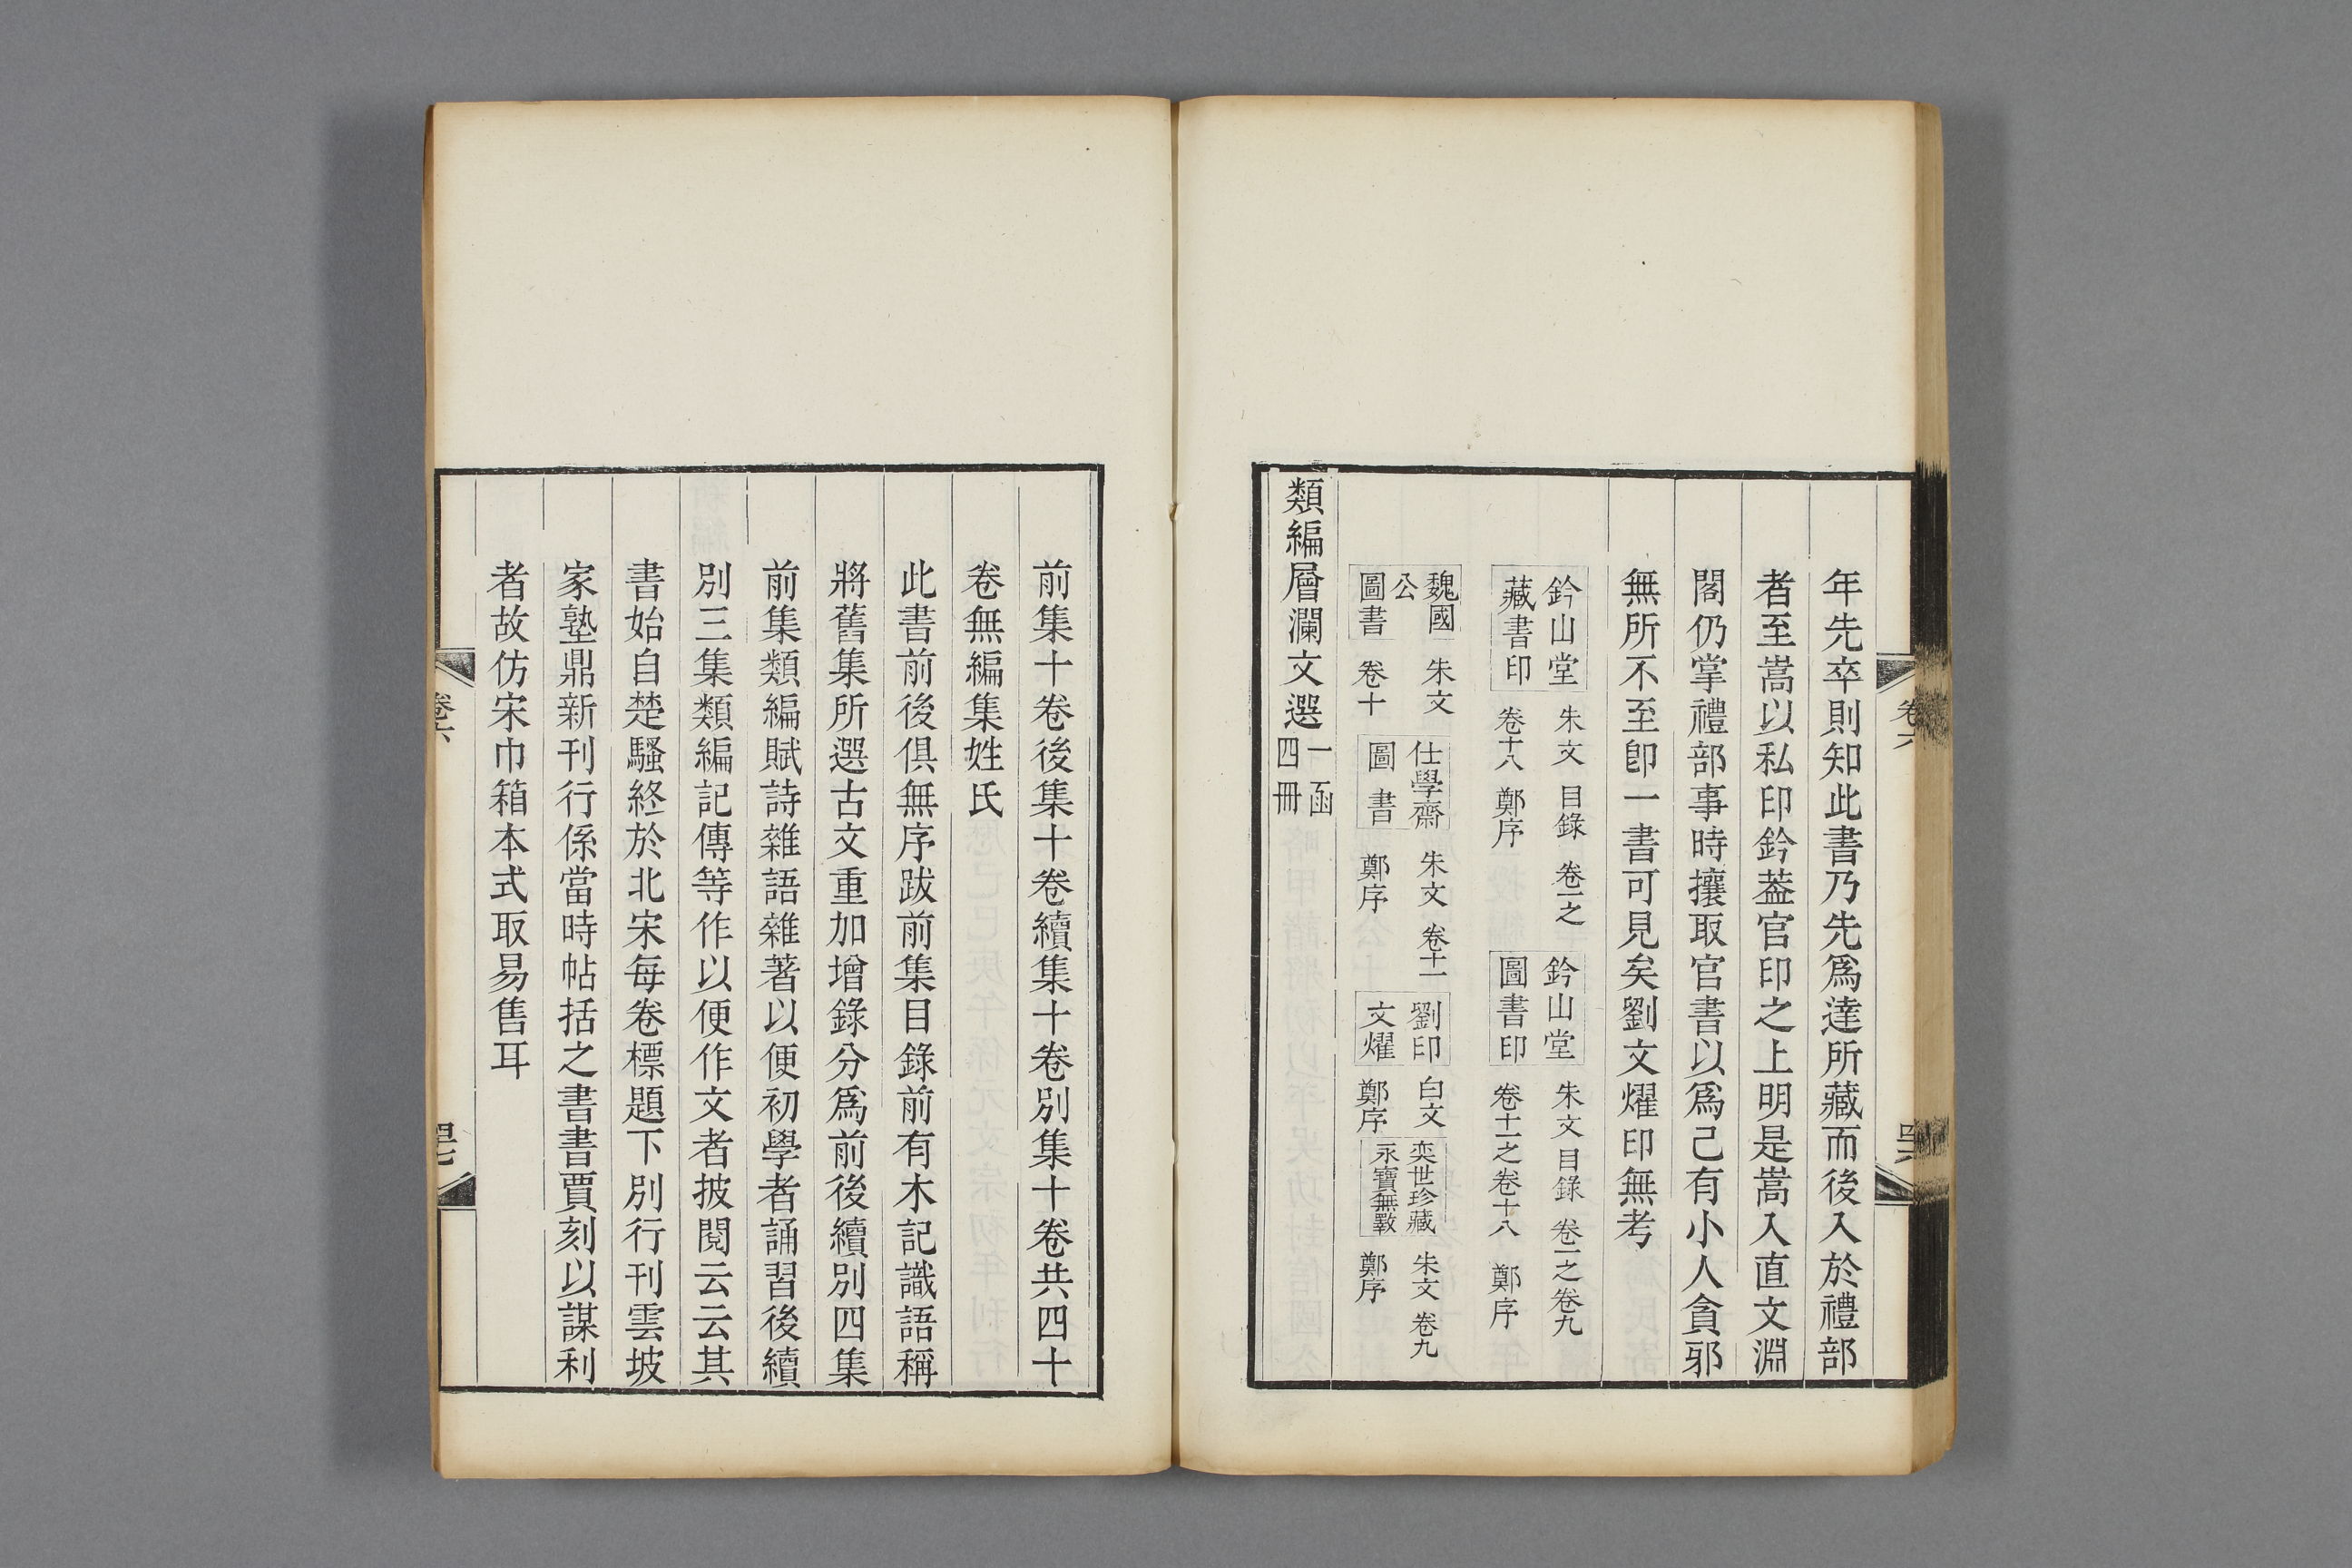 年先卒則知此書乃先爲達所藏而後入於禮部
者至嵩以私印鈐葢官印之上明是嵩入直文淵
閣仍掌禮部事時攘取官書以爲己有小人貪邪
無所不至卽一書可見矣劉文燿印無考
鈐山堂
藏書印
朱文 目錄 卷一之
卷十八 鄭序
鈐山堂
圖書印
朱文 目錄 卷一之卷九
卷十一之卷十八 鄭序
魏國
公
圖書
朱文
卷十
仕學齋
圖書
朱文 卷十一
鄭序
劉印
文燿
白文
鄭序
奕世珍藏
永寶無斁
朱文 卷九
鄭序
類編層瀾文選
一函
四冊
卷六
前集十卷後集十卷續集十卷別集十卷共四十
卷無編集姓氏
此書前後俱無序跋前集目錄前有木記識語稱
將舊集所選古文重加增錄分爲前後續別四集
前集類編賦詩雜語雜著以便初學者誦習後續
別三集類編記傳等作以便作文者披閱云云其
書始自楚騷終於北宋每卷標題下別行刊雲坡
家塾鼎新刊行係當時帖括之書書賈刻以謀利
者故仿宋巾箱本式取易售耳
卷六